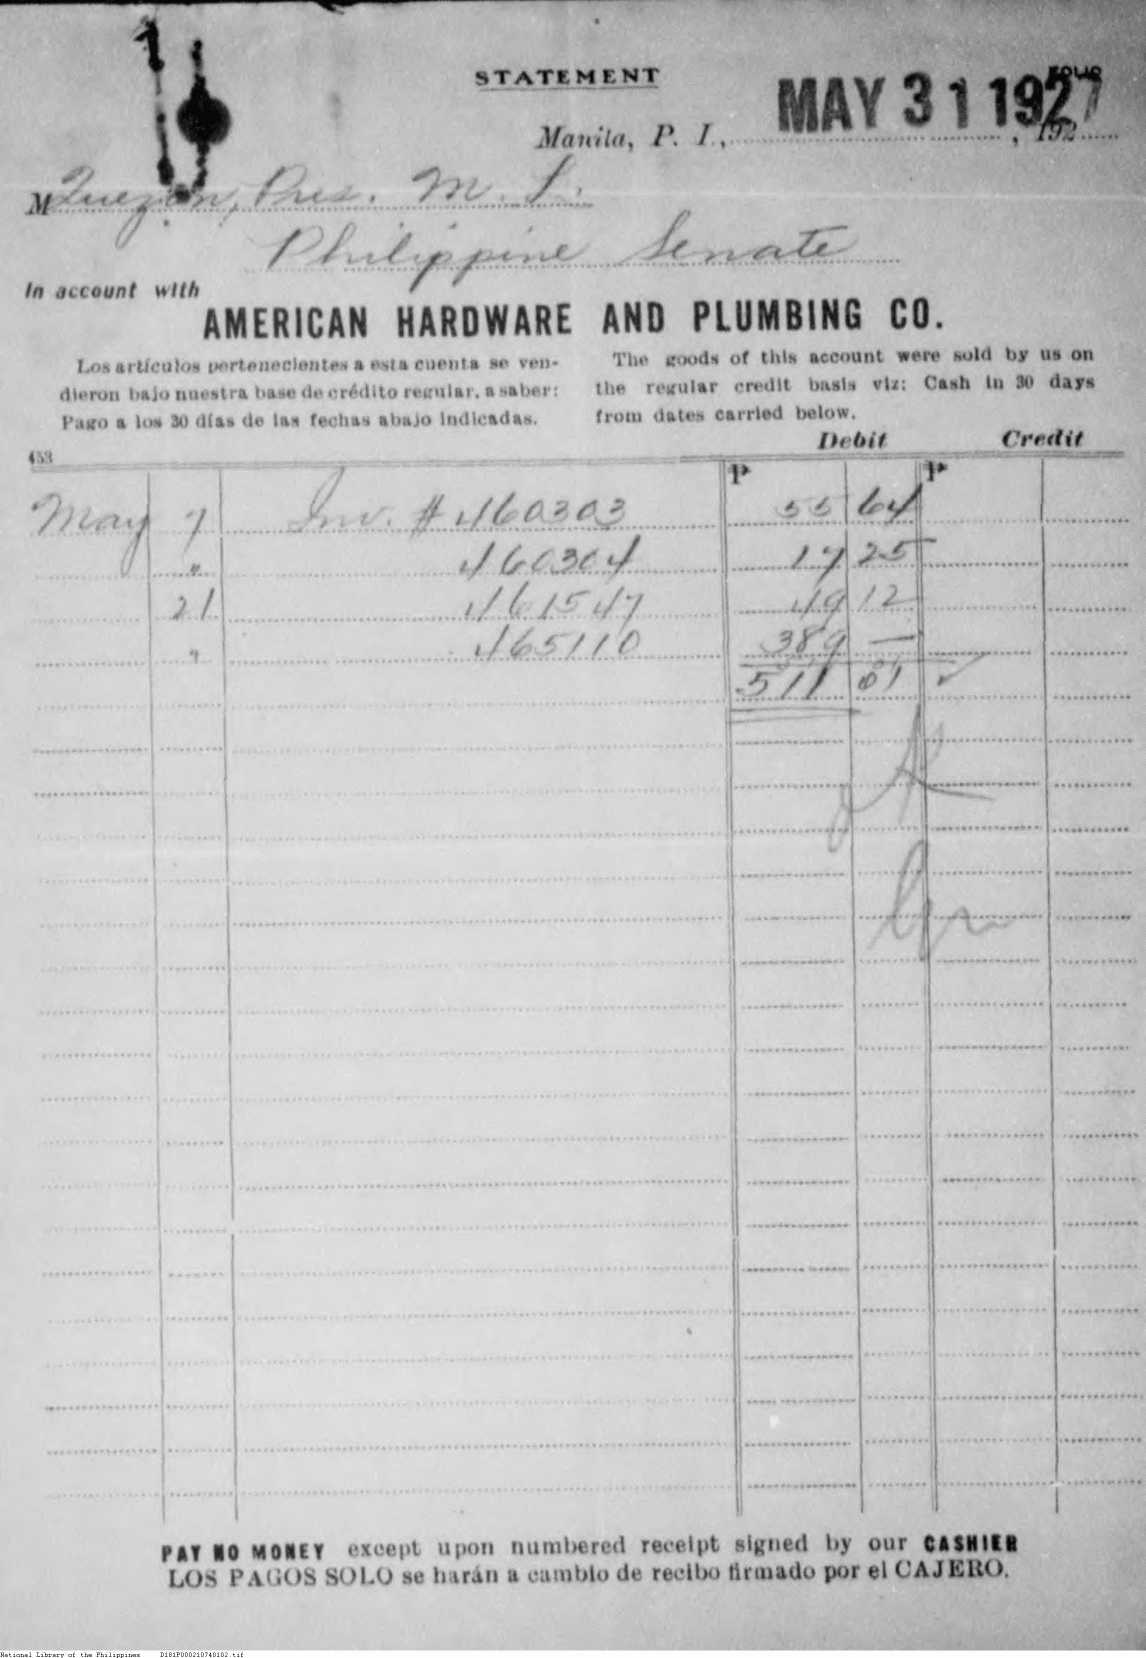 STATEMENT
FOLIO
Manila, P. I., MAY 31 1927, 192
M Quezon, Pres. M. L.
Philippine Senate
In account with
AMERICAN HARDWARE AND PLUMBING CO.
Los artículos pertenecientes a esta cuenta se ven-
dieron bajo nuestra base de crédito regular, a saber:
Pago a los 30 días de las fechas abajo indicadas.
The goods of this account were sold by us on
the regular credit basis viz: Cash in 30 days
from dates carried below.
Debit Credit
453
P P
May 7 Inv. # 460303 55 64
" 460304 17 25
21 461547 49 12
" 465110 389 —
511 01 ✓
OK
PAY NO MONEY except upon numbered receipt signed by our CASHIER
LOS PAGOS SOLO se harán a cambio de recibo firmado por el CAJERO.
National Library of the Philippines D181P000210740102.tif